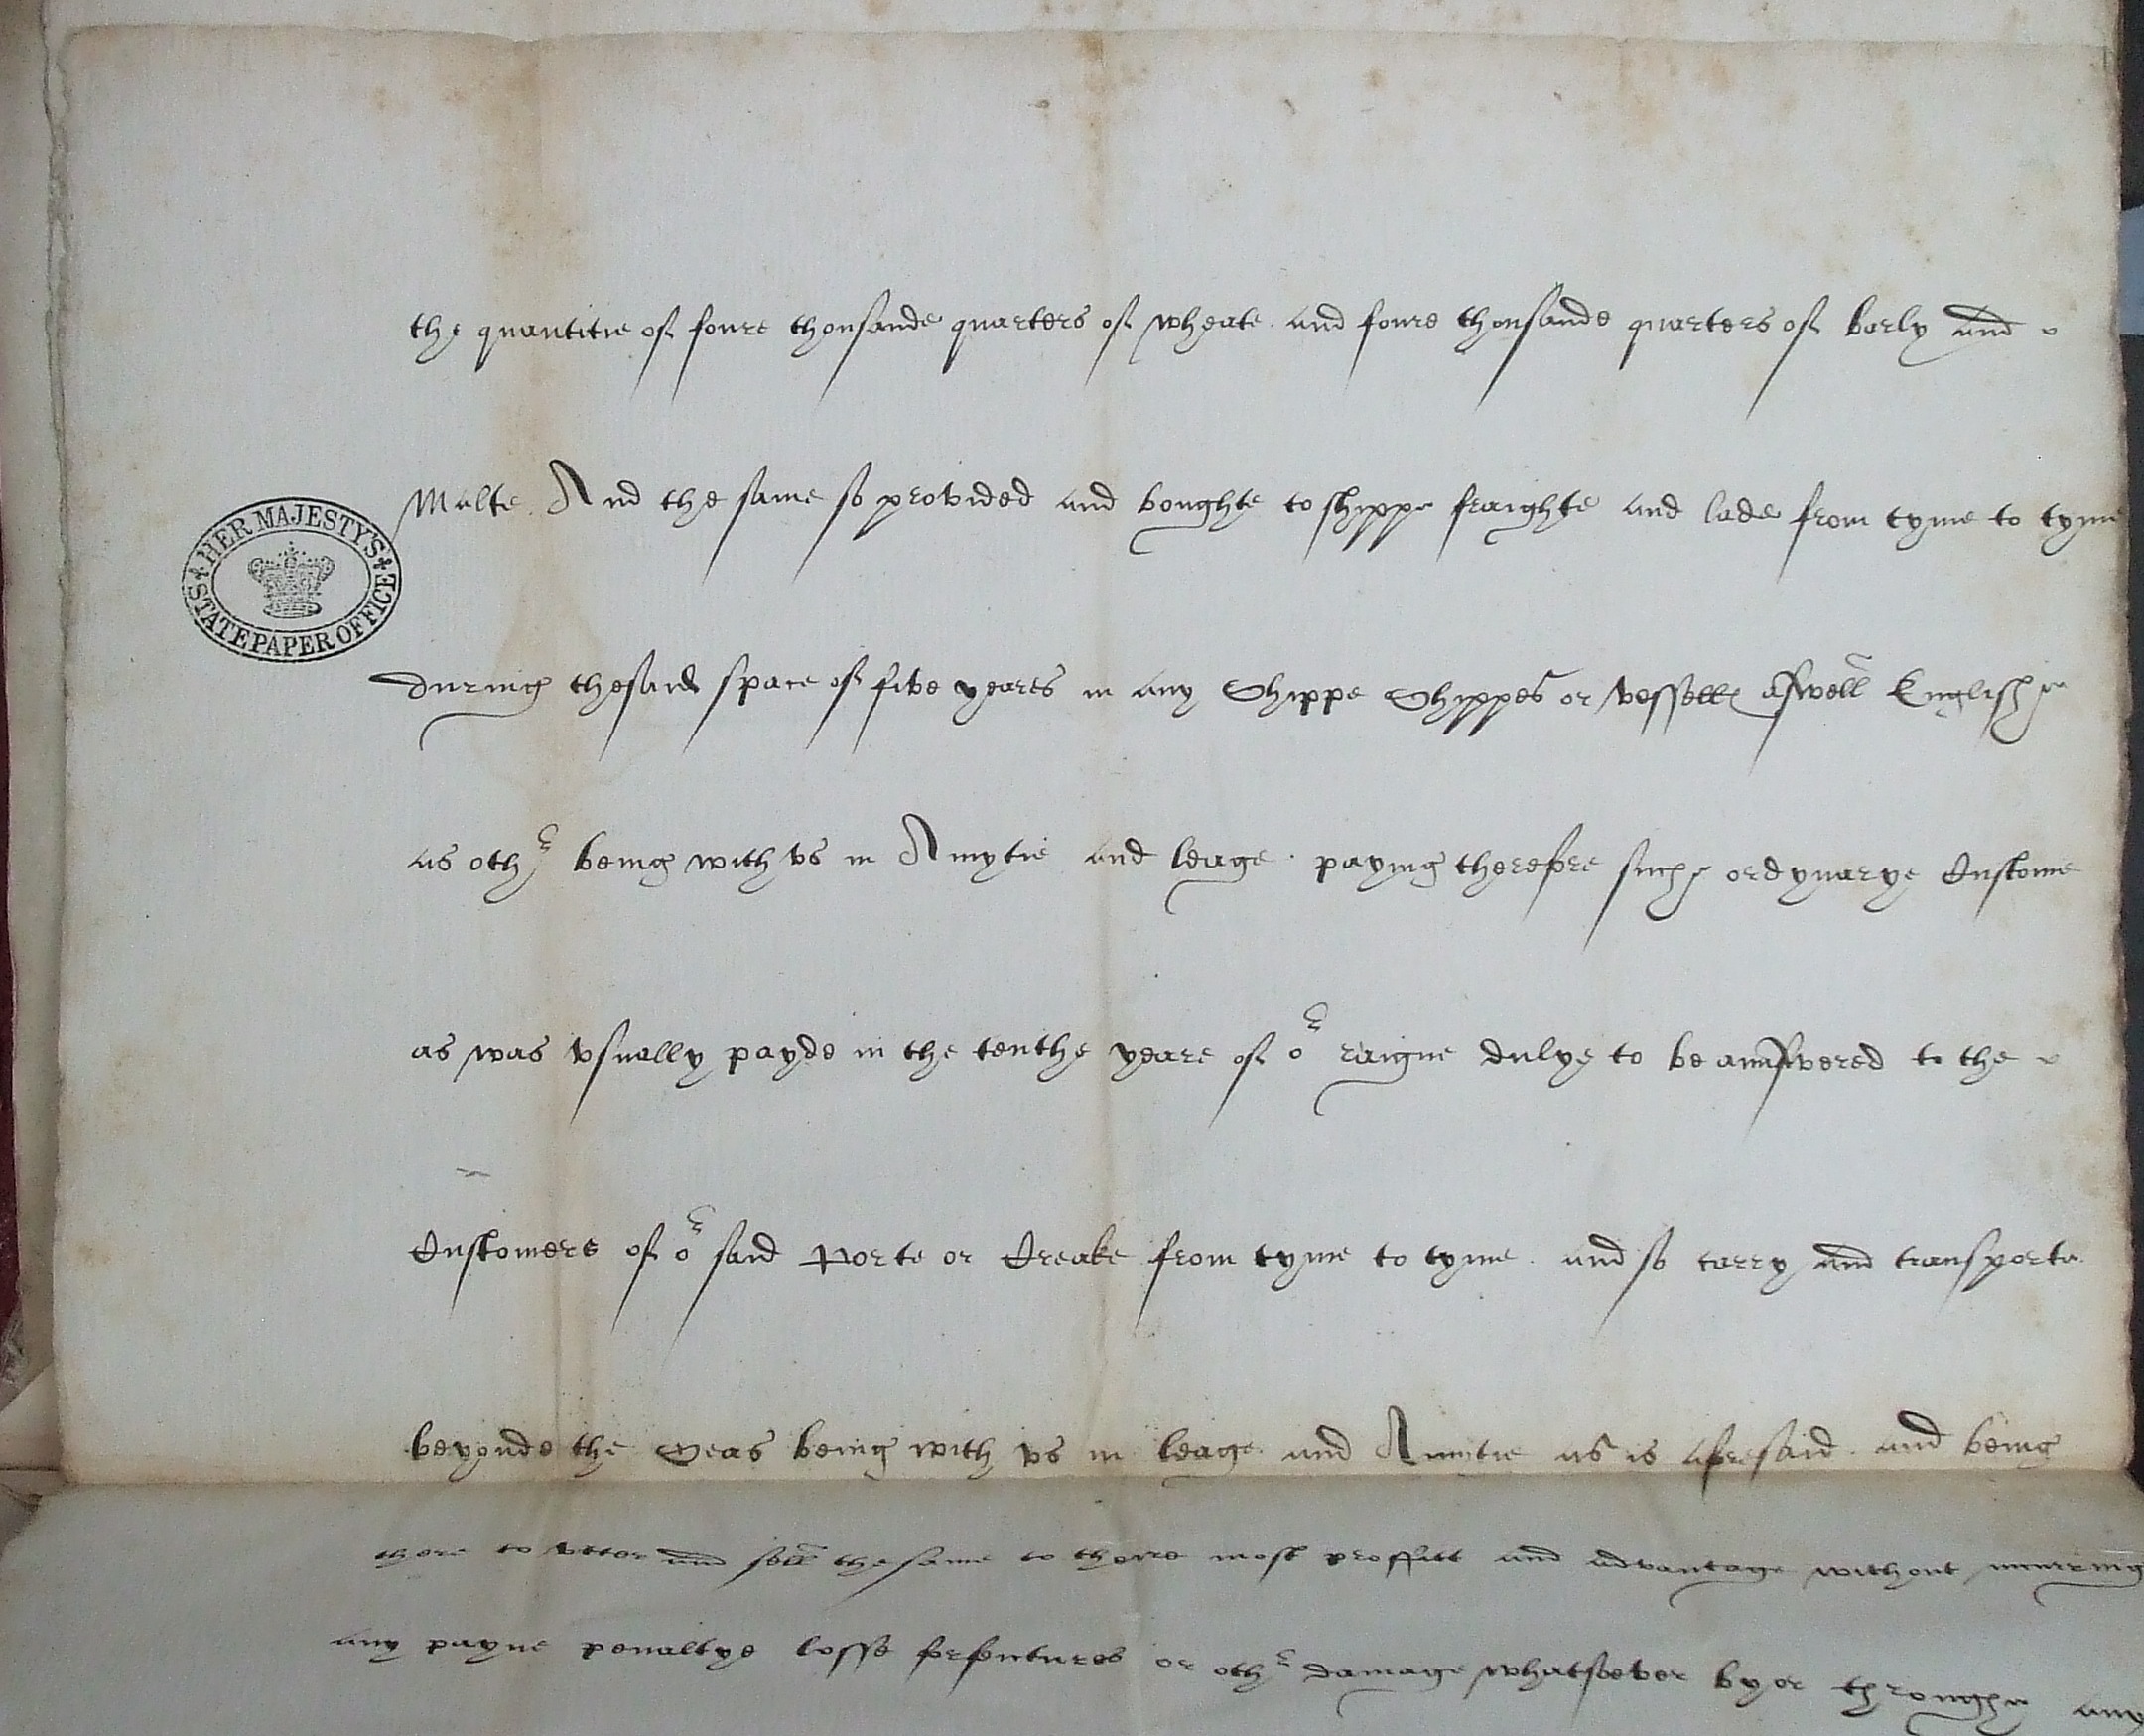 the quantitie of foure thousande quarters of wheate. and foure thousande quarters of barly and
Malte. And the same so provided and boughte to shippe fraighte and lade from tyme to tyme
HER MAJESTY'S
STATE PAPER OFFICE
during thesaid space of five yeares in any Shippe Shippes or vessells aswell Englishe
as othr being with vs in Amytie and leage. paying therefore suche ordynarye Custome
as was vsually payde in the tenthe yeare of or raigne dulye to be aunswered to the
Customers of or said Porte or Creake from tyme to tyme. and so carry and transporte
beyonde the Seas being with vs in leage and Amitie as is aforesaid. and being
there to vtter and sell the same to theire most proffitt and advantage without incurring
any payne penaltye losse forfeitures or othr damage whatsoever by or throughe any